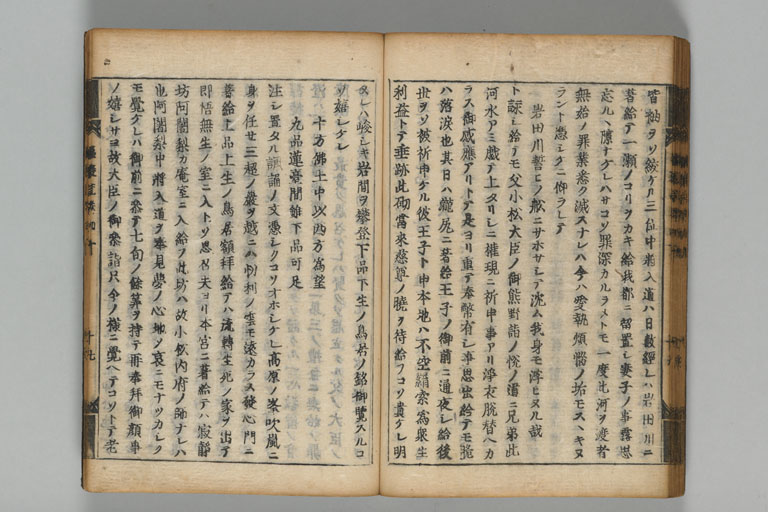 皆袖ヲソ絞ケル三位中将入道ハ日数経レハ岩田川ニ
著給テ一瀬ノコリヲカキ給我都ニ留置シ妻子ノ事露思
忘ルヽ隙ナケレハサコソ罪深カルラメトモ一度此河ヲ渡者
無始ノ罪業悉ク滅スナレハ今ハ愛執煩悩ノ垢モスヽキヌ
ラント憑シクニ仰ラレテ
岩田川誓ヒノ船ニサホサシテ沈ム我身モ浮ヒヌル哉
ト詠シ給テモ父小松大臣ノ御熊野詣ノ悦ノ道ニ兄弟此
河水アミ戯テ上タリシニ権現ニ祈申事アリ浄衣脱替ヘカ
ラス御感應アリトテ是ヨリ重テ奉幣有シ事思出給テモ脆
ハ落涙也其日ハ瀧尻ニ著給王子ノ御前ニ通夜シ給後
世ヲソ被祈申ケル彼王子ト申本地ハ不空羂索為衆生
利益トテ垂跡此砌當来慈尊ノ暁ヲ待給フコソ貴ケレ明
ヌレハ峻シキ岩間ヲ攀登下品下生ノ鳥居ノ銘御覧スルコ
ソ嬉シケレ
十方佛土中以西方為望
九品蓮臺間雖下品可足
注シ置タル諷誦ノ文憑シクコソオホシケレ高原ノ峯吹嵐ニ
身ヲ任セ三超ノ巌ヲ越ニハ忉利ノ雲モ遠カラス發心門ニ
著給上品上生ノ鳥居額拝給テハ流轉生死ノ家ヲ出テ
即悟無生ノ室ニ入トソ思召夫ヨリ本宮ニ著給テハ寂静
坊阿闍梨カ庵室ニ入給フ此坊ハ故小松内府ノ師ナレハ
也阿闍梨中将入道ヲ奉見夢ノ心地ソ哀ニモナツカシク
モ覺ケレハ御前ニ参テ七旬ノ餘算ヲ持テ再奉拝御顔事
ノ嬉シサヨ故大臣ノ御参詣只今ノ様ニ覺ヘテコソトテ老